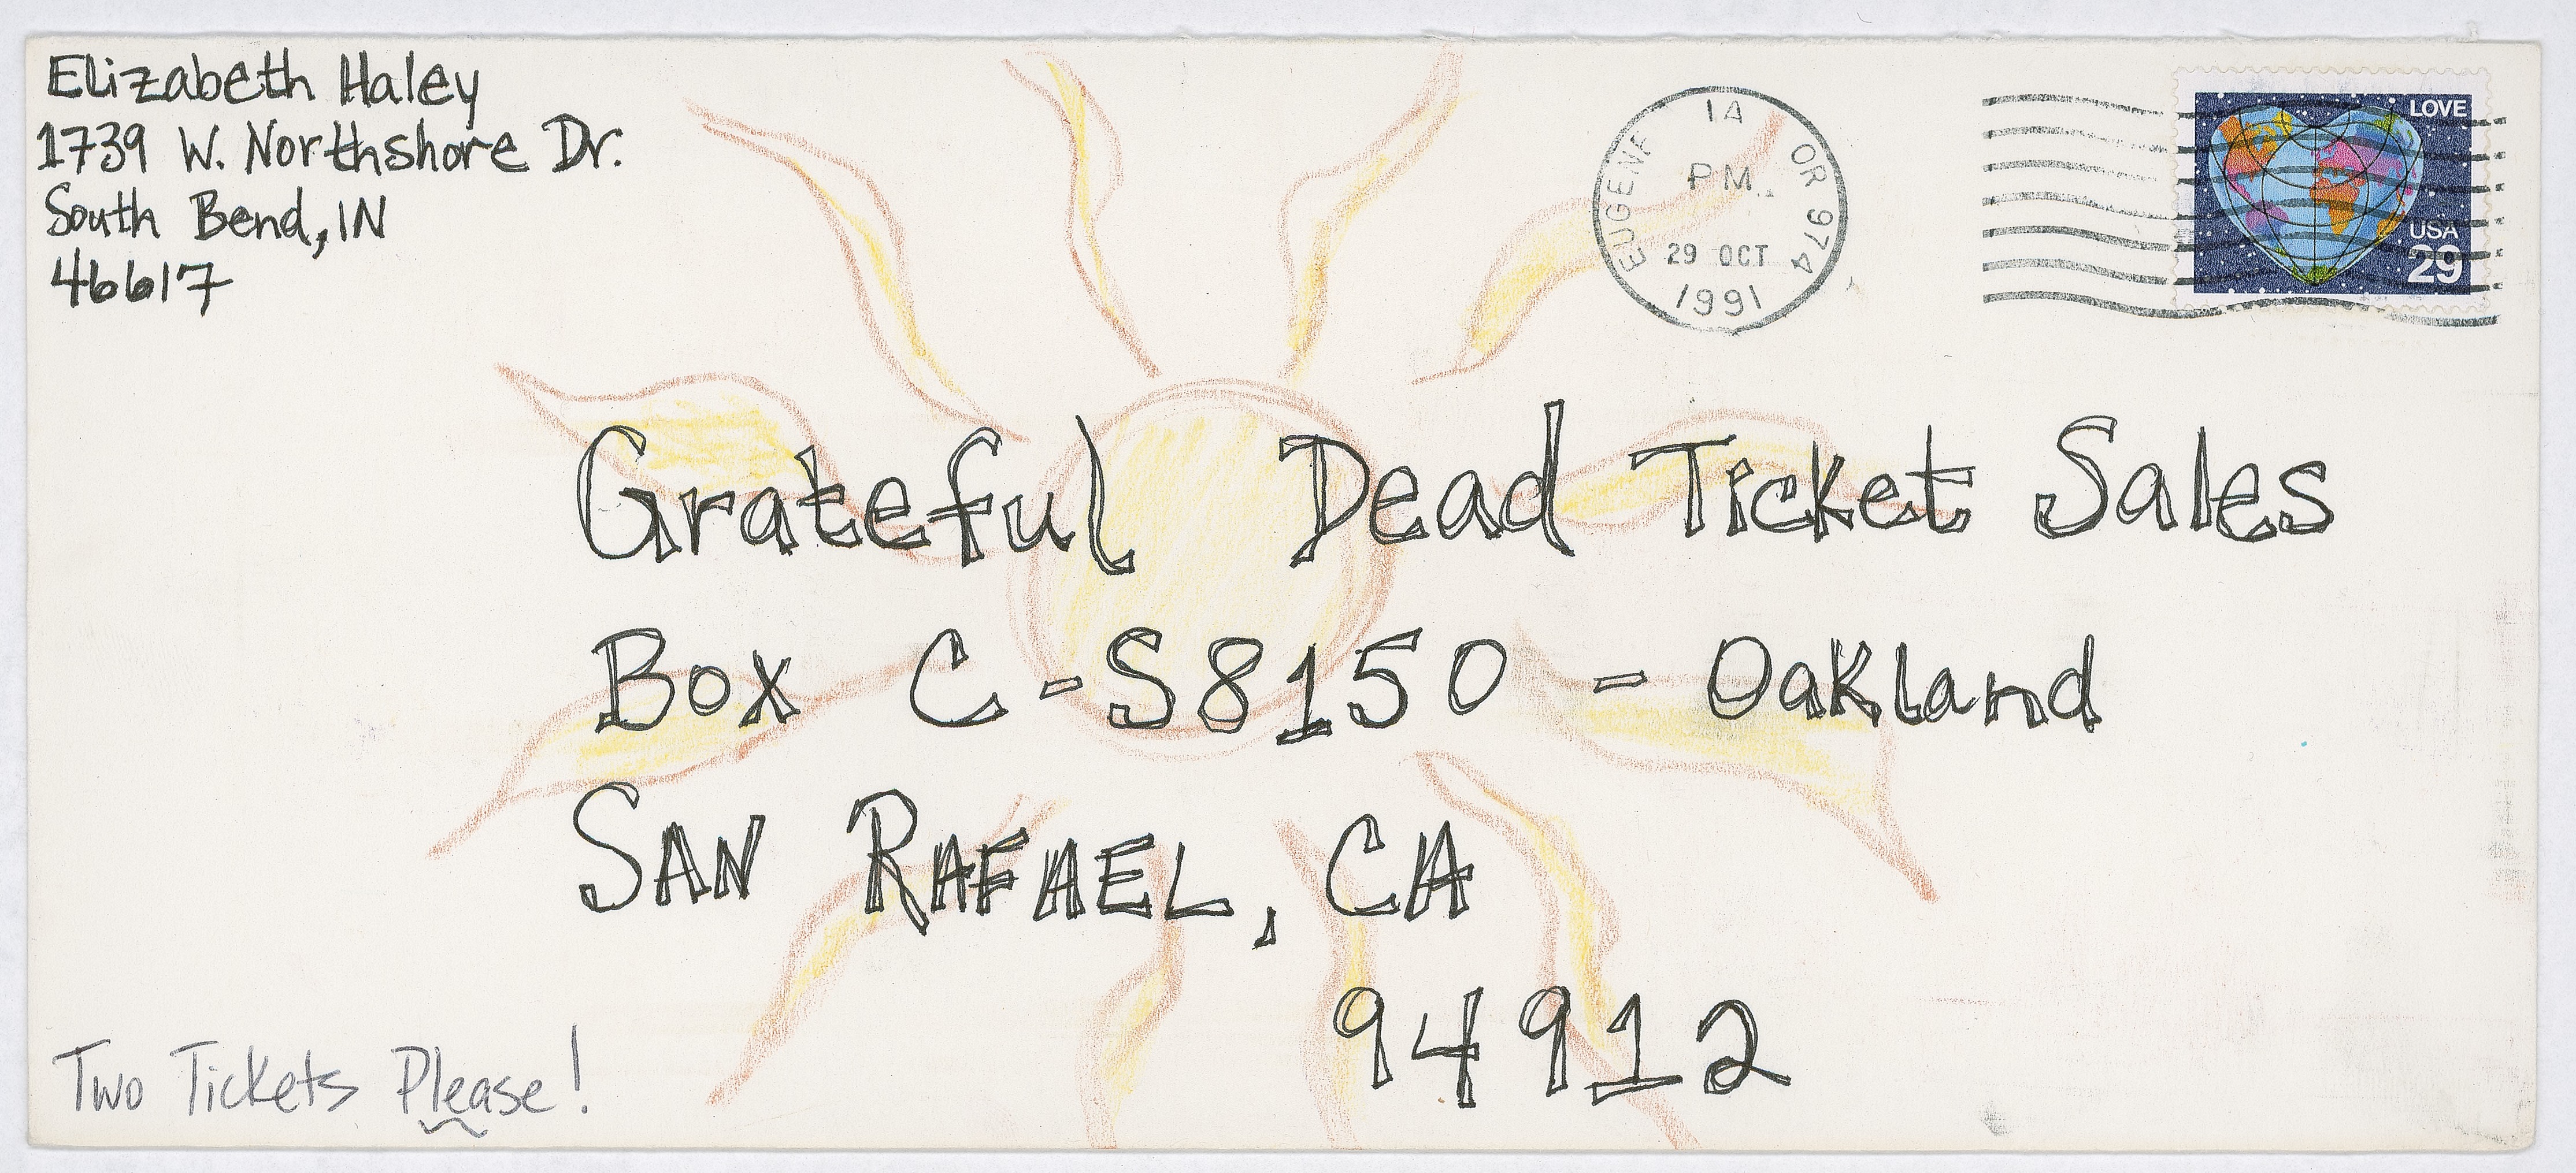 Elizabeth Haley
1739 W. Northshore Dr.
South Bend, IN
46617
EUGENE OR 974
1A
PM
29 OCT
1991
LOVE
USA
29
Grateful Dead Ticket Sales
Box C-S8150 - Oakland
SAN RAFAEL, CA
94912
Two Tickets Please!